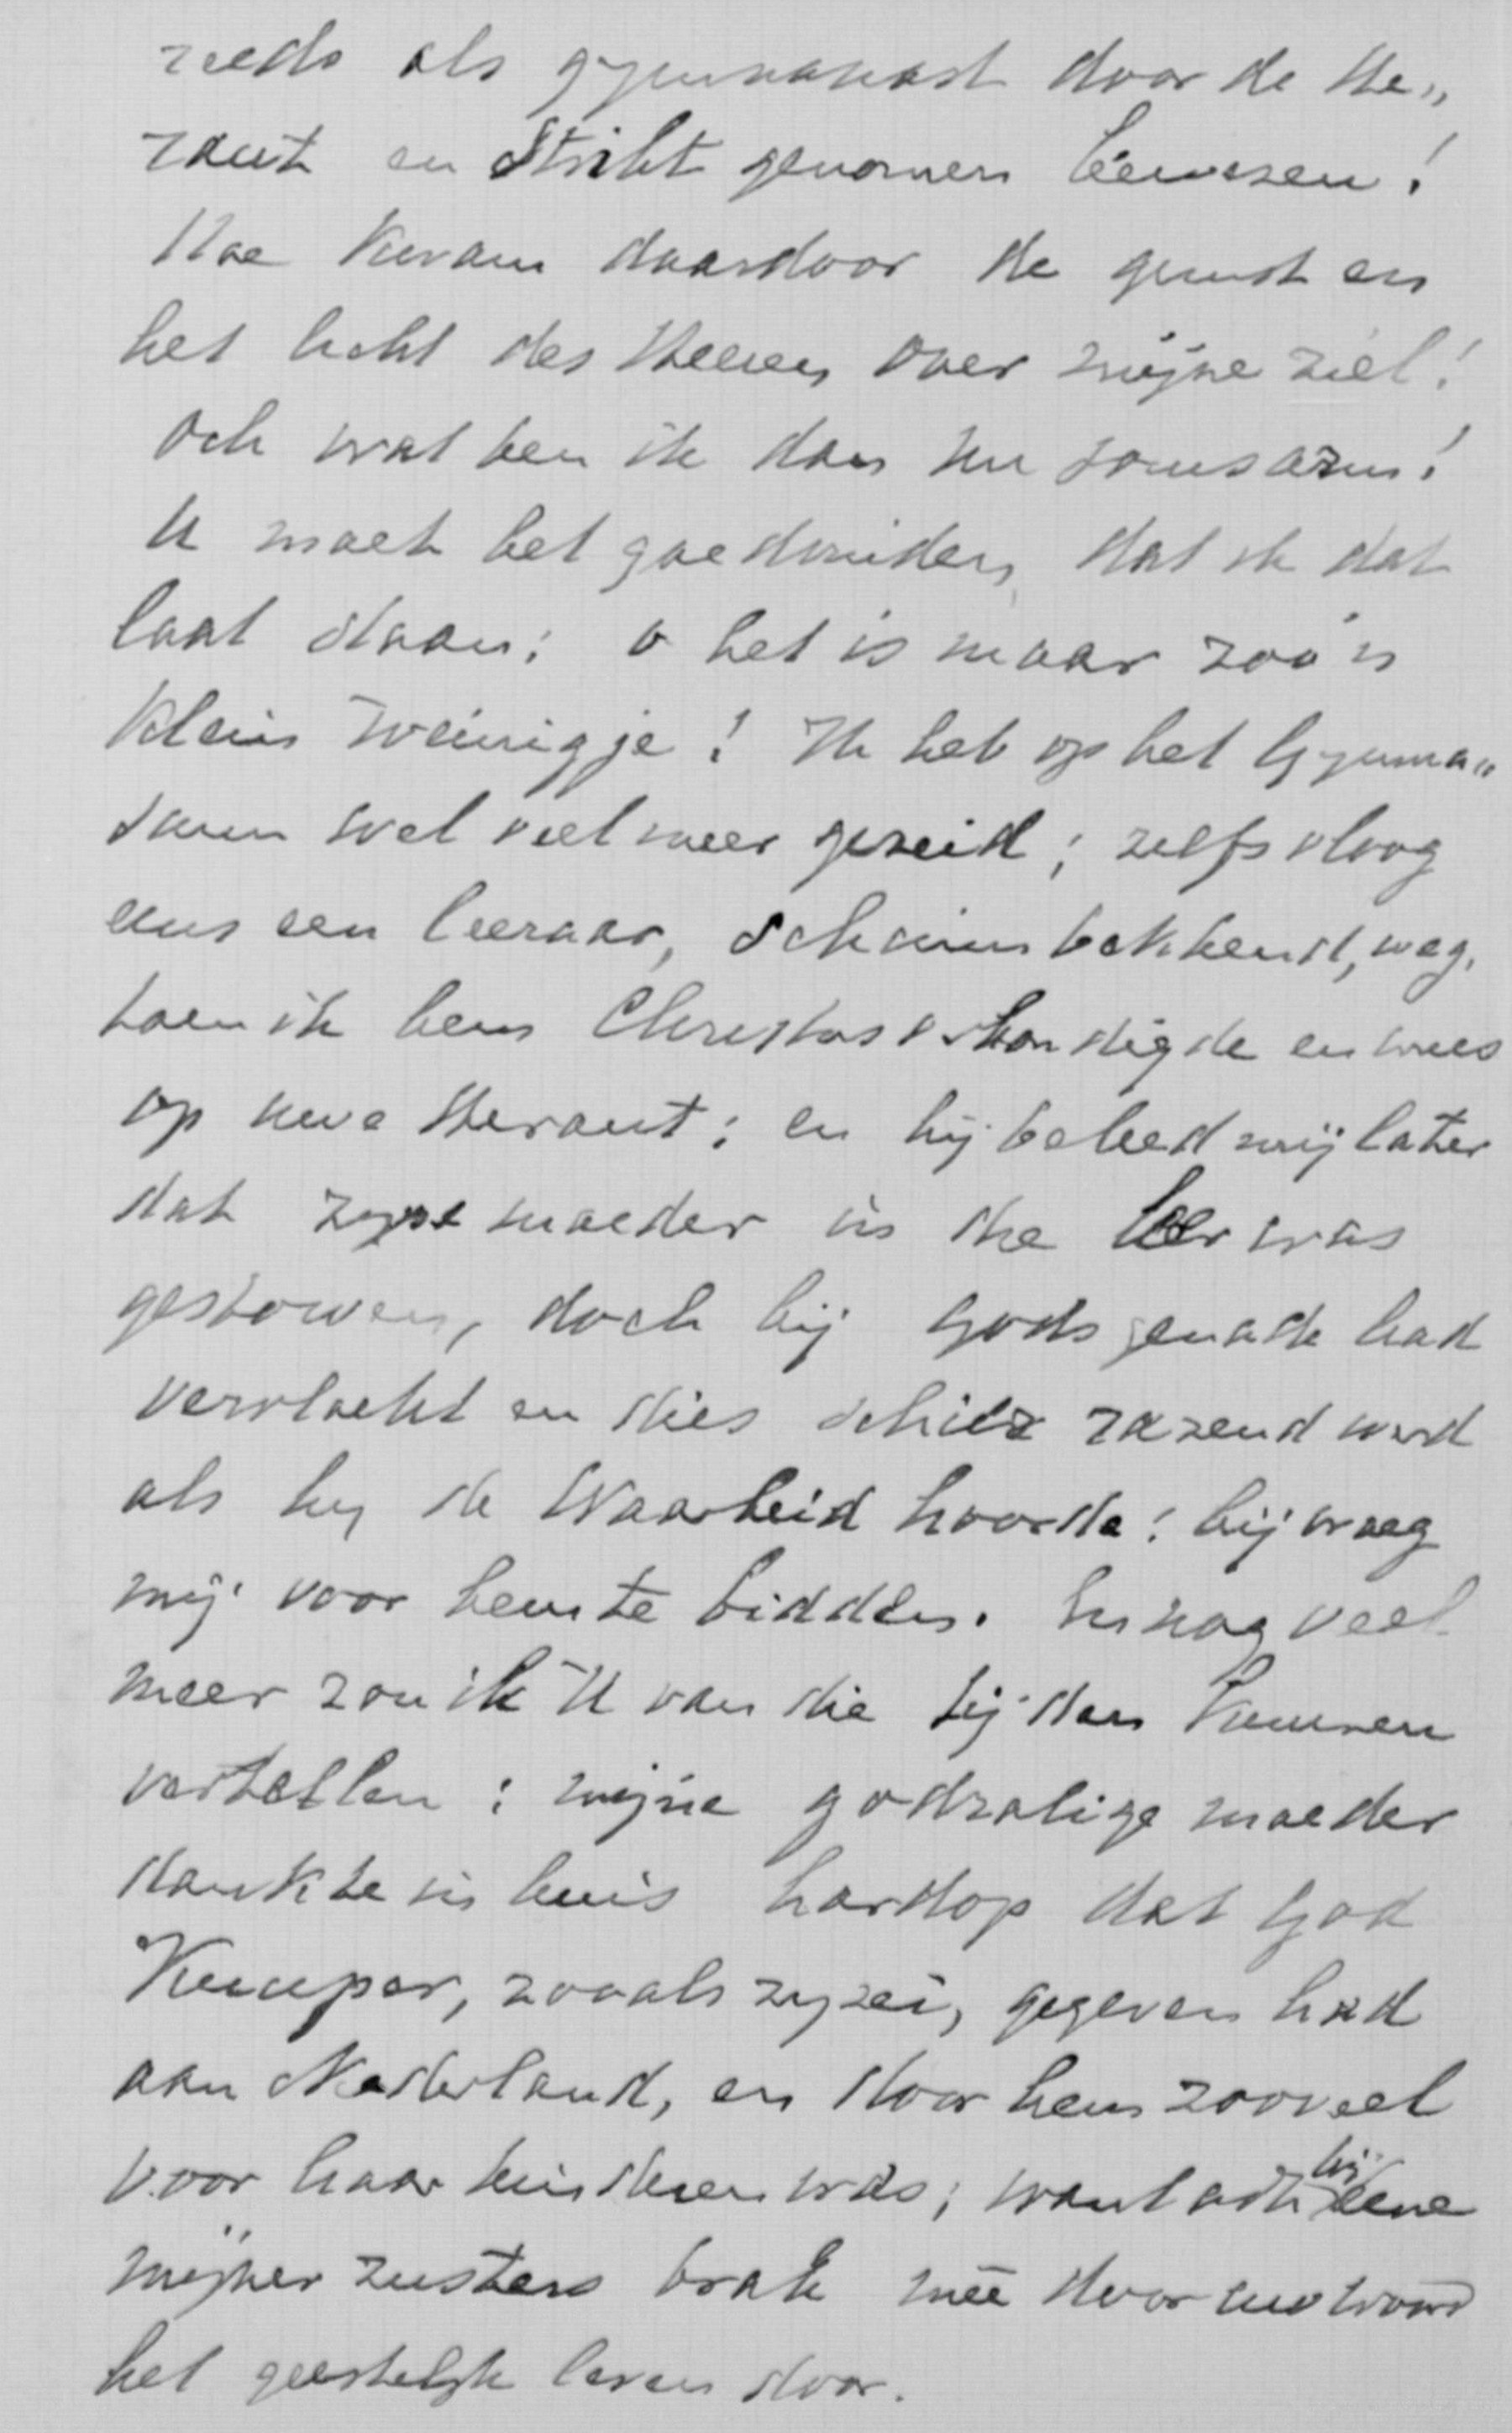 reeds als gymnasiast door de He„
raut en strikt genomen bewezen!
Hoe kwam daardoor de gunst en
het licht des Heeren over mijne ziel!
Och wat ben ik dan nu soms arm!
U moet het goedvinden, dat ik dat
laat staan; o het is maar zoo'n
klein weinigje! Ik heb op het Gymna„
sium wel veel meer gezeid; zelfs vloog
eens een leeraar, schuimbekkend, weg,
toen ik hem Christus verkondigde en wees
op uwe Heraut; en hij beleed mij later
dat zijne moeder in die leer was
gestorven, doch hij Gods genade had
vervloekt en dies schier razend werd
als hij de Waarheid hoorde! hij vroeg
mij voor hem te bidden. En nog veel
meer zou ik U van die tijden kunnen
vertellen: mijne godzalige moeder
dankte in huis hardop dat God
Kuuper, zooals zij zei, gegeven had
aan Nederland, en door hem zooveel
voor haar kinderen was; want ook bij eene
mijner zusters brak mee door uw woord
het geestelijk leven door.